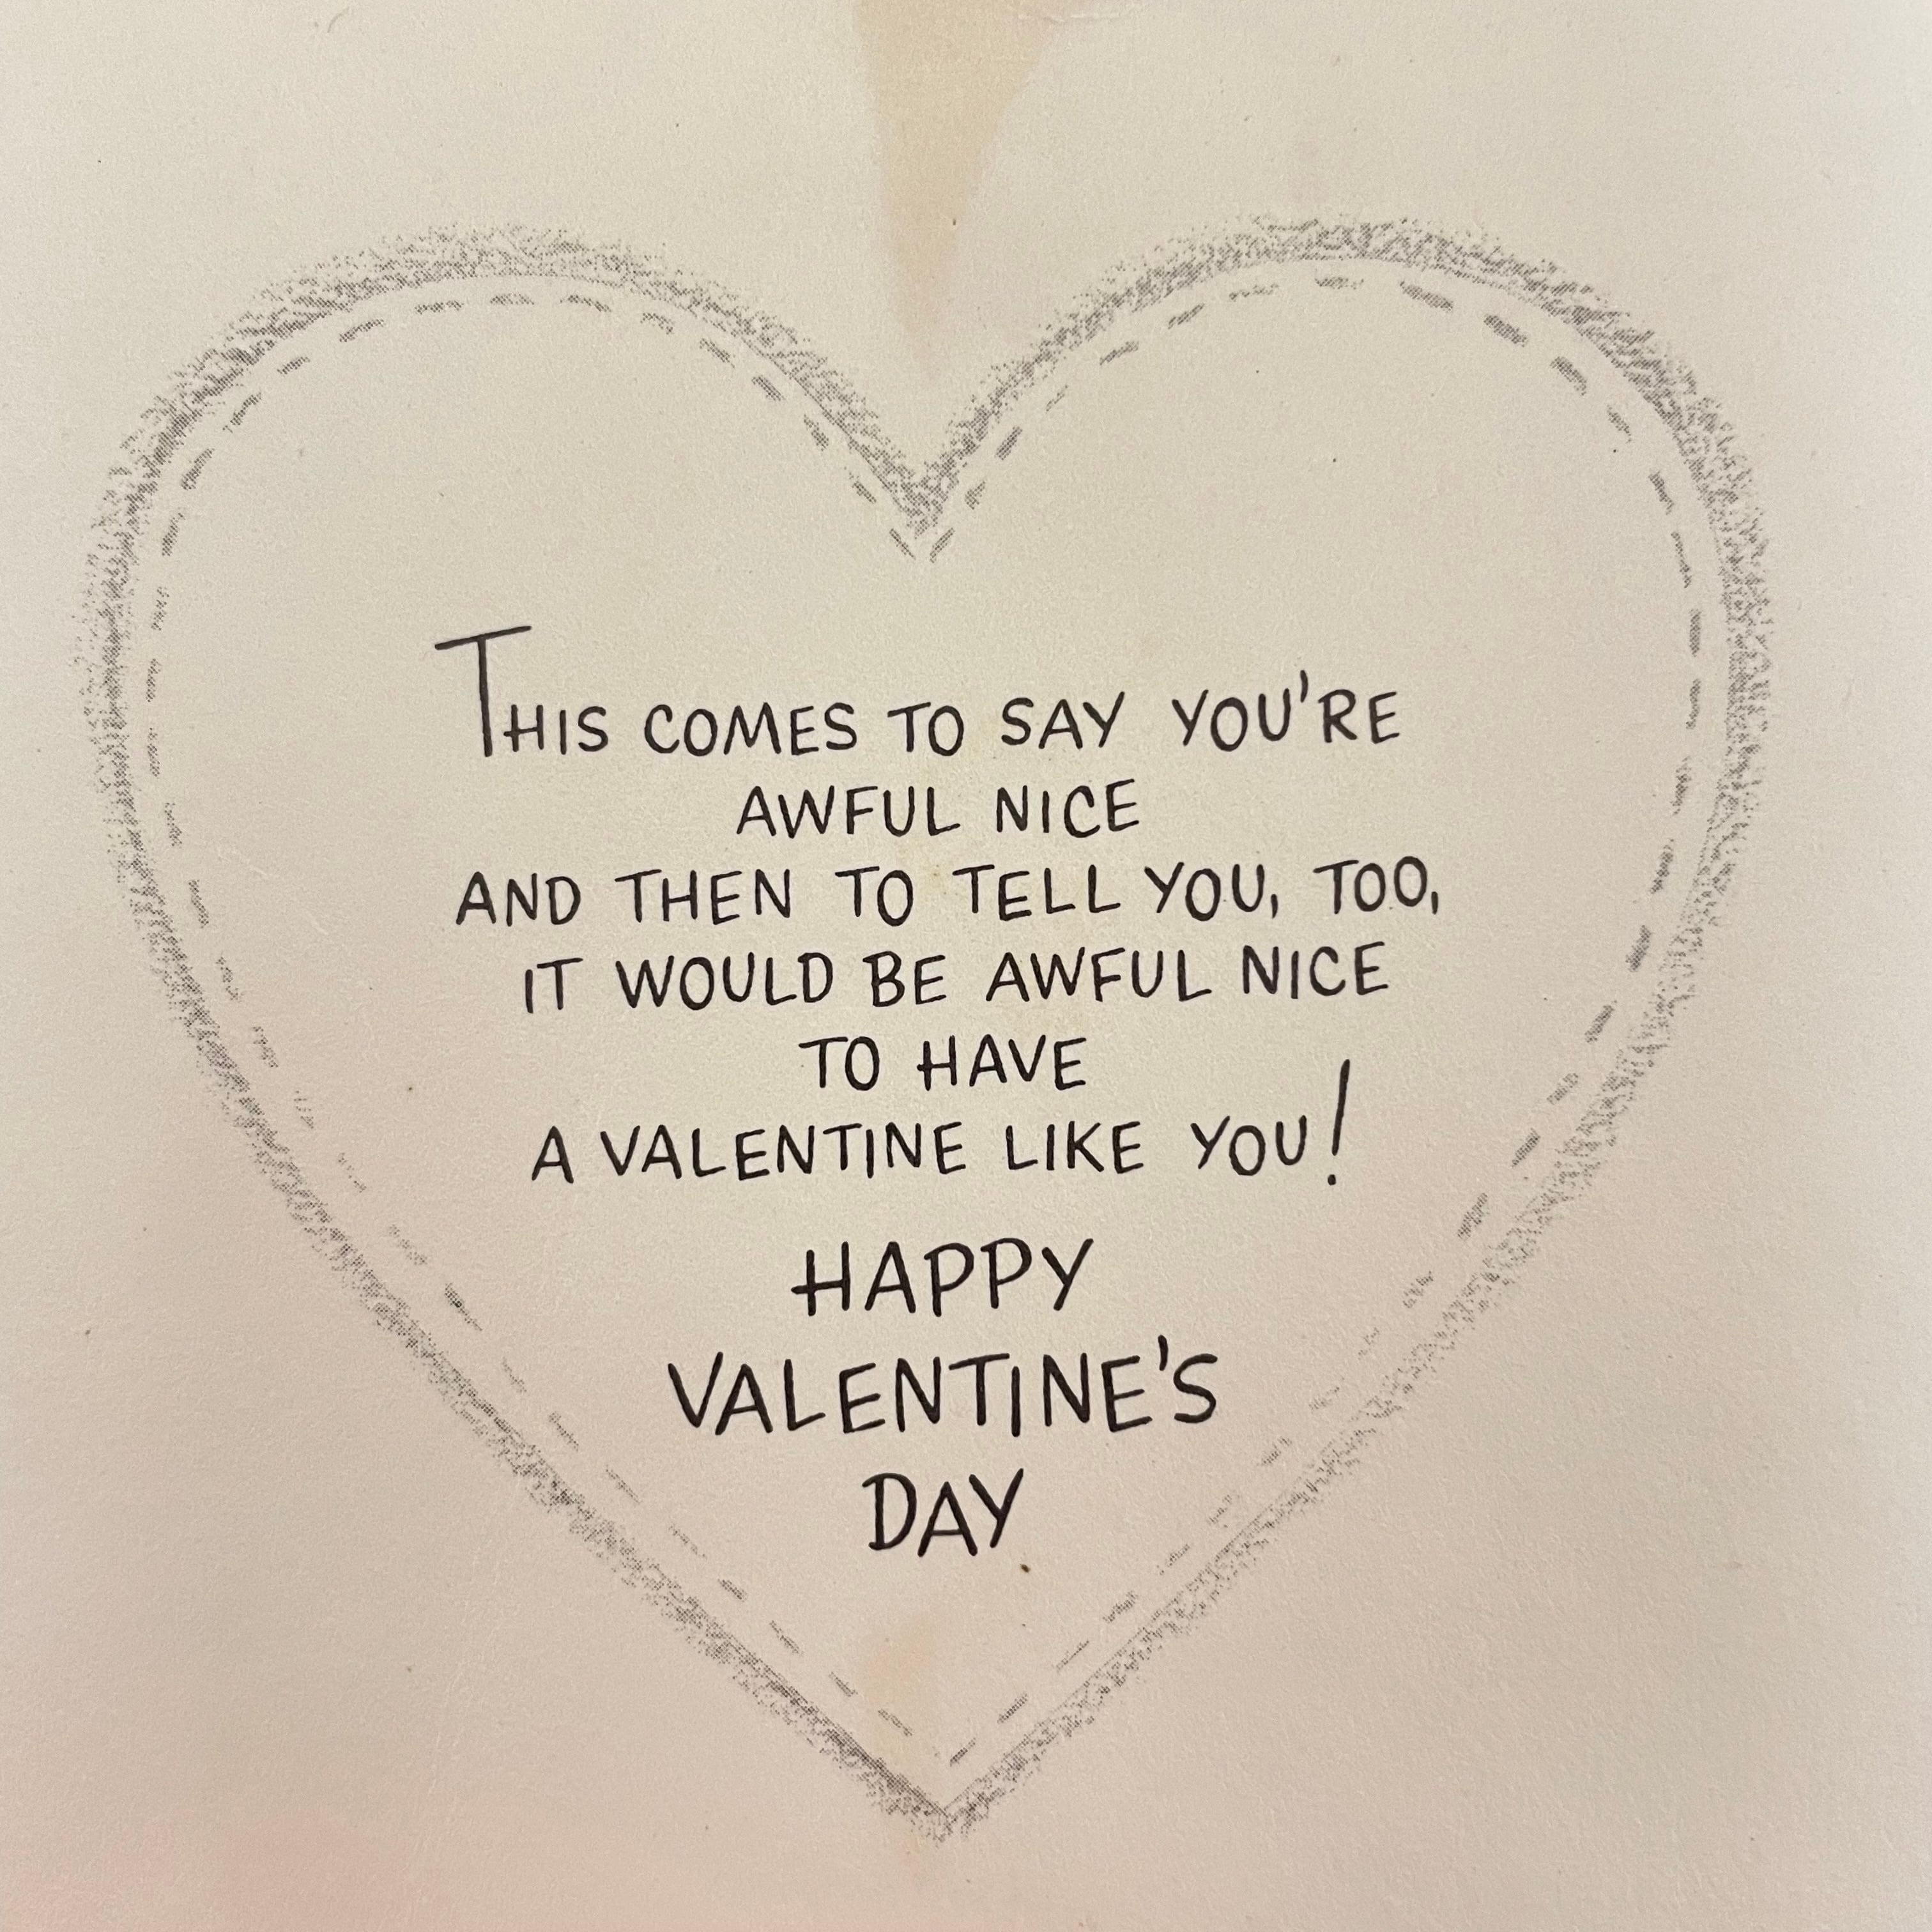 THIS COMES TO SAY YOU'RE
AWFUL NICE
AND THEN TO TELL YOU, TOO,
IT WOULD BE AWFUL NICE
TO HAVE
A VALENTINE LIKE YOU!
HAPPY
VALENTINE'S
DAY